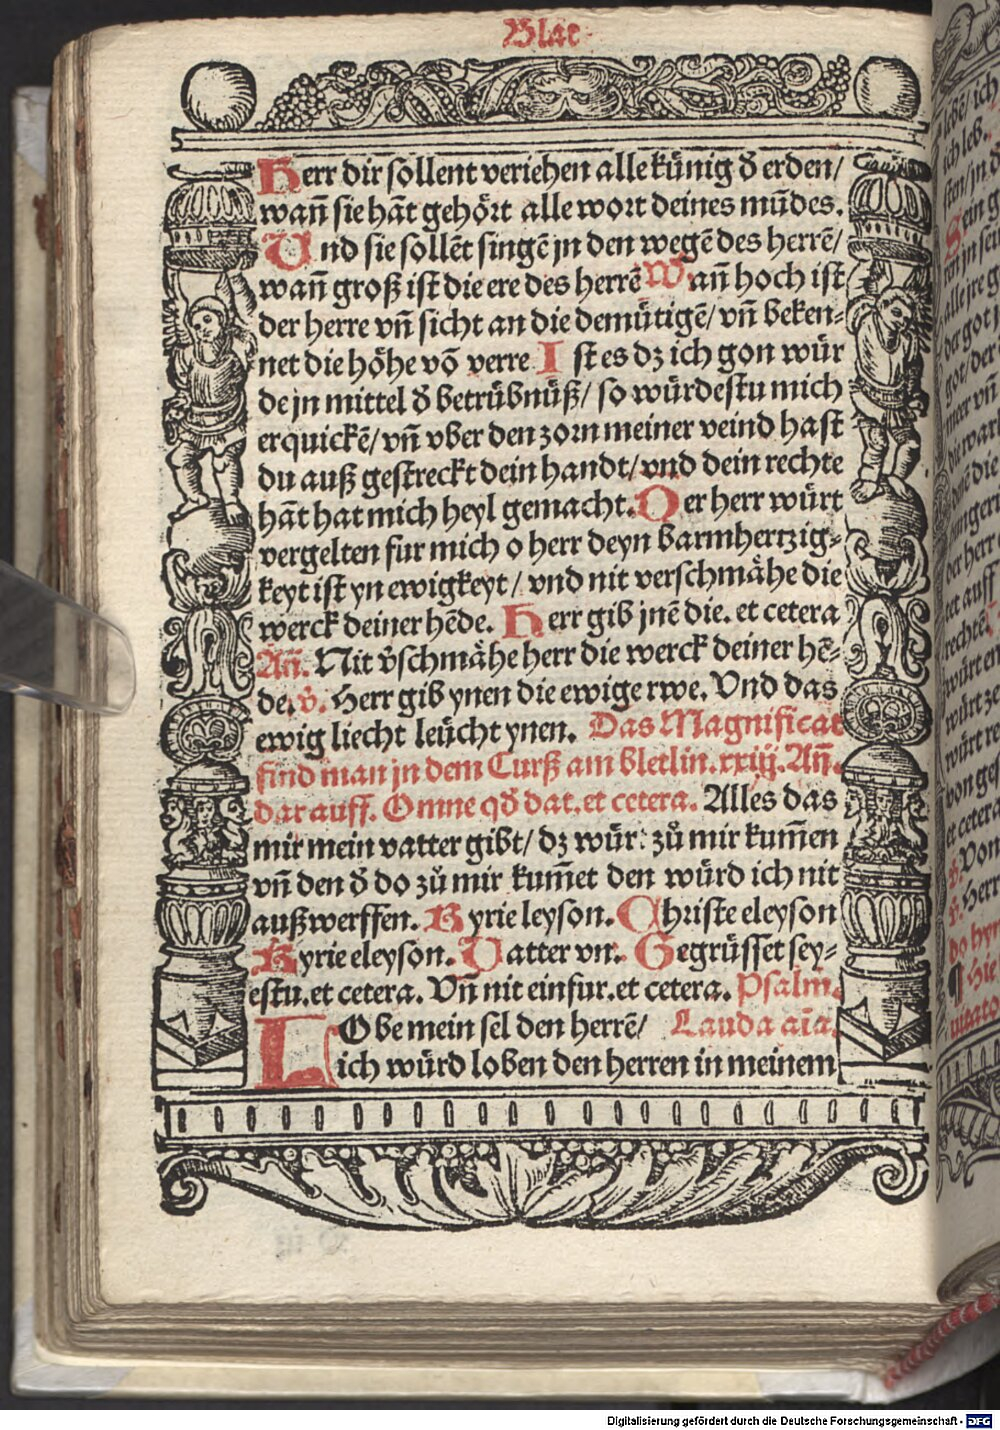 Blat
Herr dir sollent veriehen alle künig d̕ erden/
wañ sie hãt gehoͤrt alle wort deines mũdes.
Und sie sollẽt singẽ jn den wegẽ des herrẽ/
wañ groß ist die ere des herrẽ Wañ hoch ist
der herre vñ sicht an die demuͤtigẽ/ vñ beken⸗
net die hoͤhe võ verre Ist es dz ich gon wür
de jn mittel d̕ betruͤbnuͤß/ so wuͤrdestu mich
erquickẽ/ vñ vber den zorn meiner veind hast
du auß gestreckt dein handt/ vnd dein rechte
hãt hat mich heyl gemacht. Der herr wuͤrt
vergelten fur mich o herr deyn barmhertzig⸗
keyt ist yn ewigkeyt/ vnd nit verschmaͤhe die
werck deiner hẽde. Herr gib jnẽ die. et cetera
Añ. Nit v̕schmaͤhe herr die werck deiner hẽ⸗
de. v̕. Herr gib ynen die ewige rwe. Und das
ewig liecht leuͤcht ynen. Das Magnificat
find man jn dem Curß am bletlin. xxiij. Añ.
dar auff. Omne qd̕ dat. et cetera. Alles das
mir mein vatter gibt/ dz wuͤr: zuͦ mir kum̃en
vñ den d̕ do zuͦ mir kum̃et den wuͤrd ich nit
außwerffen. Kyrie leyson. Christe eleyson
Kyrie eleyson. Vatter vn. Gegruͤsset sey⸗
estu. et cetera. Vñ nit einfur. et cetera. Psalm.
LObe mein sel den herrẽ/ Lauda aĩa.
ich wuͤrd loben den herren in meinem
Digitalisierung gefördert durch die Deutsche Forschungsgemeinschaft - DFG